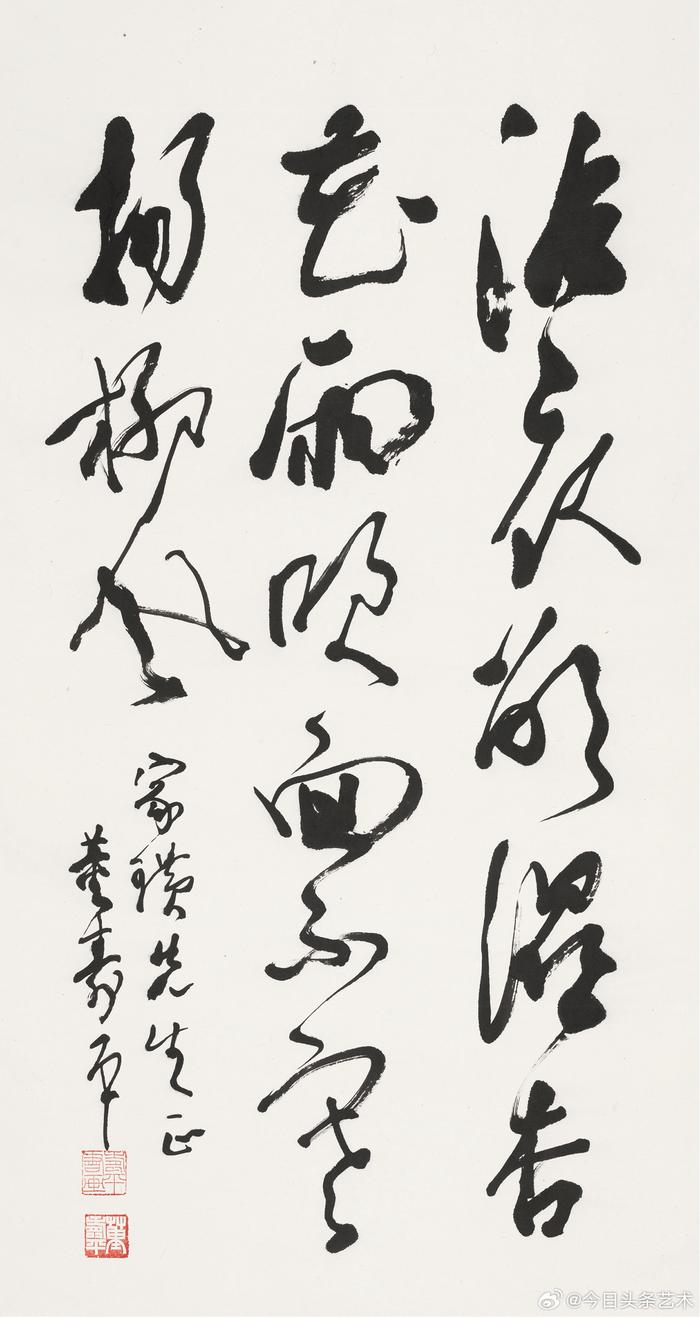 沾衣欲湿杏
花雨吹面不寒
杨柳风
家璜先生正
董寿平
@今日头条艺术